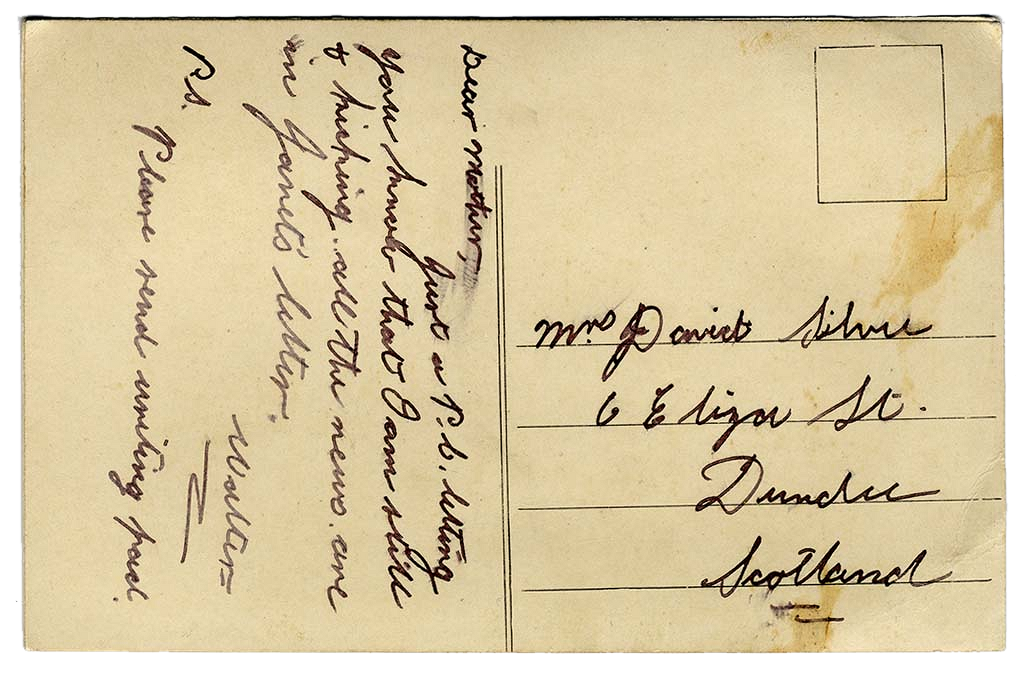 Dear Mother,
Just a P.C. letting
you know that I am still
& hiking. all the news. are
in Janet's letter.
Walter
P.S.
Please send writing pad.
Mrs David Silvie
6 Eliza St.
Dundee
Scotland